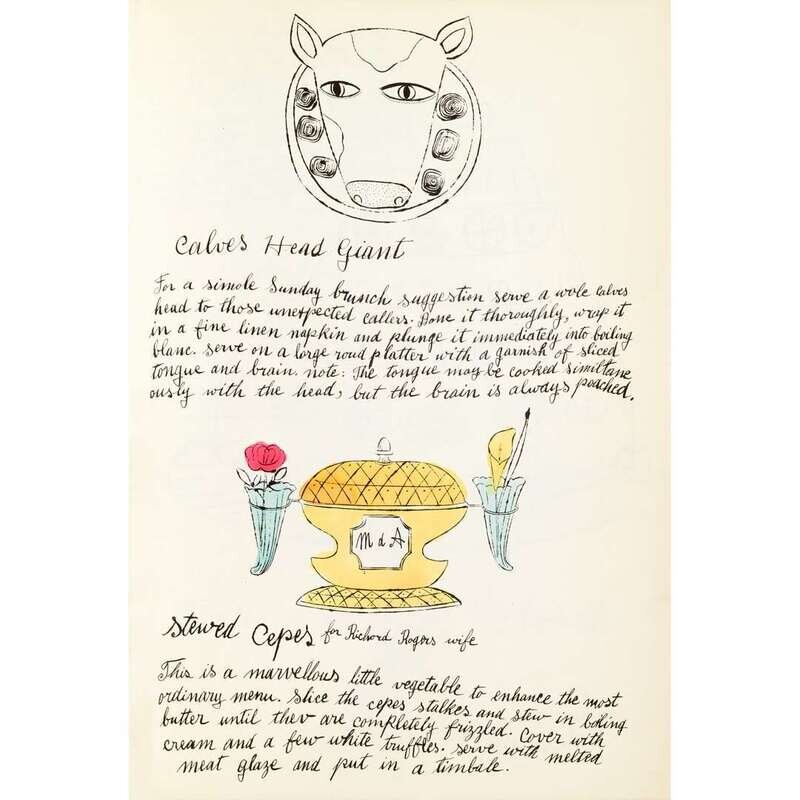 Calves Head Giant
For a simole Sunday brunch suggestion serve a wole calves
head to those unexpected callers. Bone it thoroughly, wrap it
in a fine linen napkin and plunge it immediately into boiling
blanc. Serve on a large roud platter with a garnish of sliced
tongue and brain. note: The tongue may be cooked similtane
ously with the head, but the brain is always poached.
M d A
Stewed Cepes for Richard Rogers wife
This is a marvellous little vegetable to enhance the most
ordinary menu. Slice the cepes stalkes and stew in boiling
butter until thev are completely frizzled. Cover with
cream and a few white truffles. Serve with melted
meat glaze and put in a timbale.